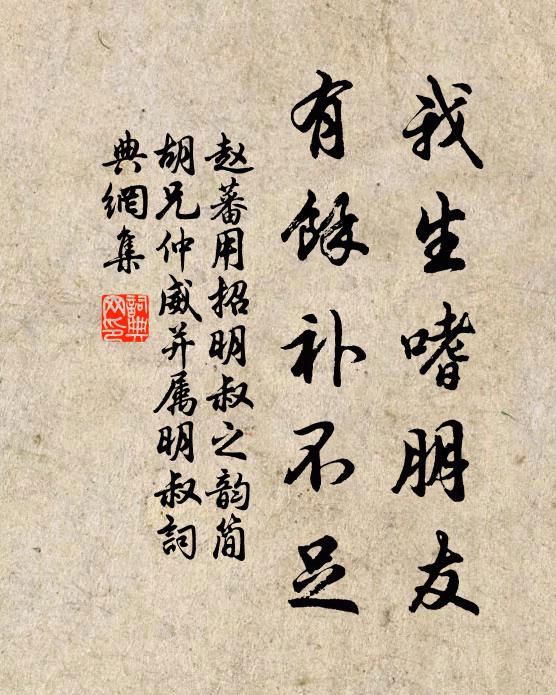 我生嗜朋友
有餘补不足
赵蕃用招明叔之韵简
胡兄仲威并属明叔詞
典網集
詞典網印